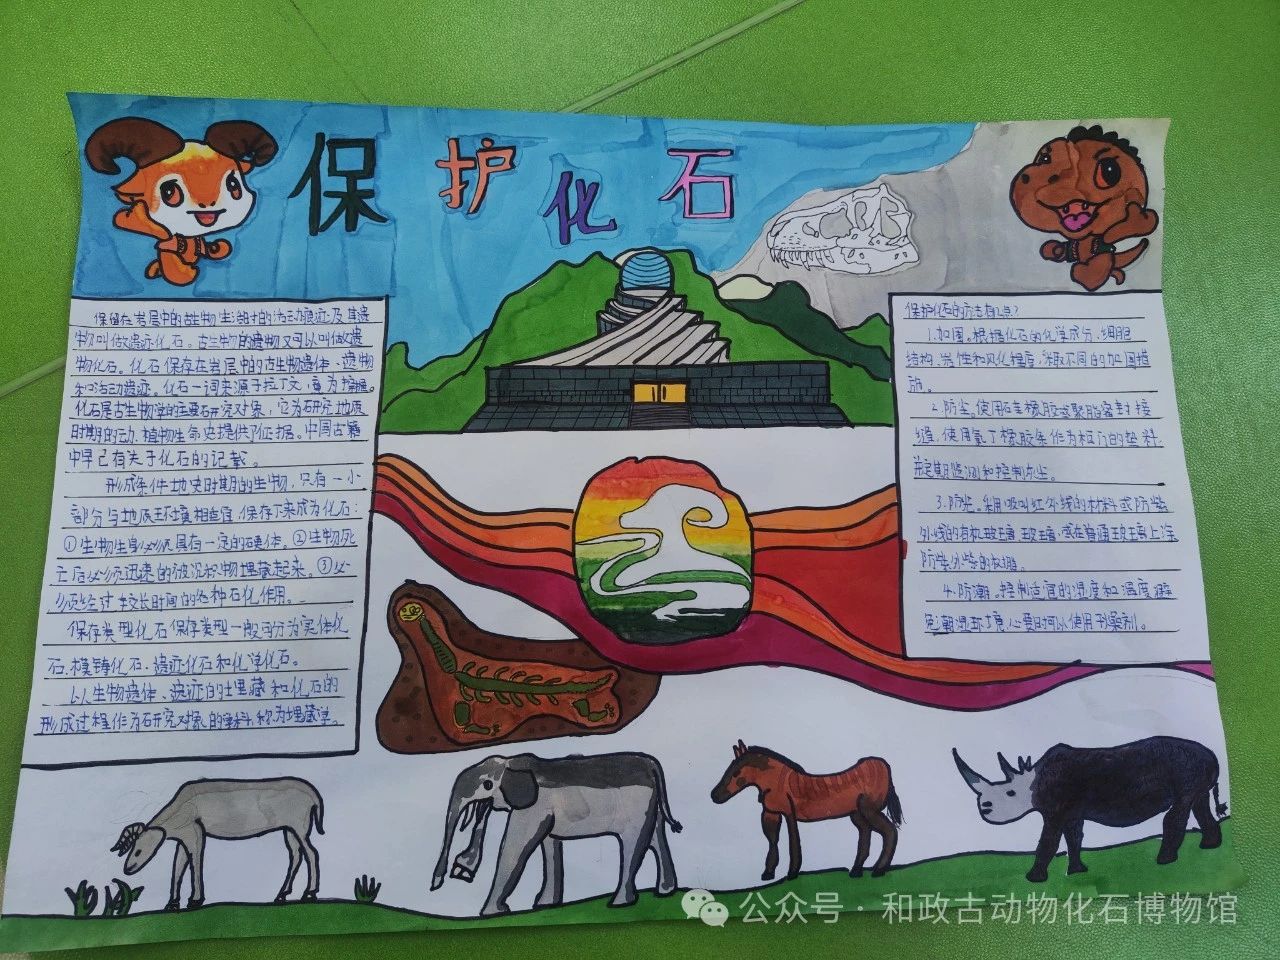 保护化石
保留在岩层中的古生物生活时的活动痕迹及其遗
物叫做遗迹化石。古生物的遗物又可以叫做遗
物化石。化石保存在岩层中的古生物遗体、遗物
和活动遗迹。化石一词来源于拉丁文,意为挖掘。
化石是古生物学的主要研究对象,它为研究地质
时期的动、植物生命史提供了证据。中国古籍
中早已有关于化石的记载。
形成条件地史时期的生物,只有一小
部分与地质环境相适应,保存下来成为化石:
①生物生身必须具有一定的硬体。②生物死
亡后必须迅速的被沉积物埋藏起来。③必
须经过较长时间的各种石化作用。
保存类型化石保存类型一般可分为实体化
石、模铸化石、遗迹化石和化学化石。
以生物遗体、遗迹的埋藏和化石的
形成过程作为研究对象的学科,称为埋藏学。
保护化石的方法有4点?
1.加固。根据化石的化学成分、细胞
结构、岩性和风化程度,采取不同的加固措
施。
2.防尘。使用硅橡胶或聚脂密封接
缝,使用氯丁橡胶条作为柜门的垫料
并定期监测和控制灰尘。
3.防光。采用吸收红外线的材料或防紫
外线的有机玻璃、玻璃,或在普通玻璃上涂
防紫外线的
4.防潮。控制适宜的湿度和温度避
免潮湿环境,必要时可以使用干燥剂。
公众号·和政古动物化石博物馆